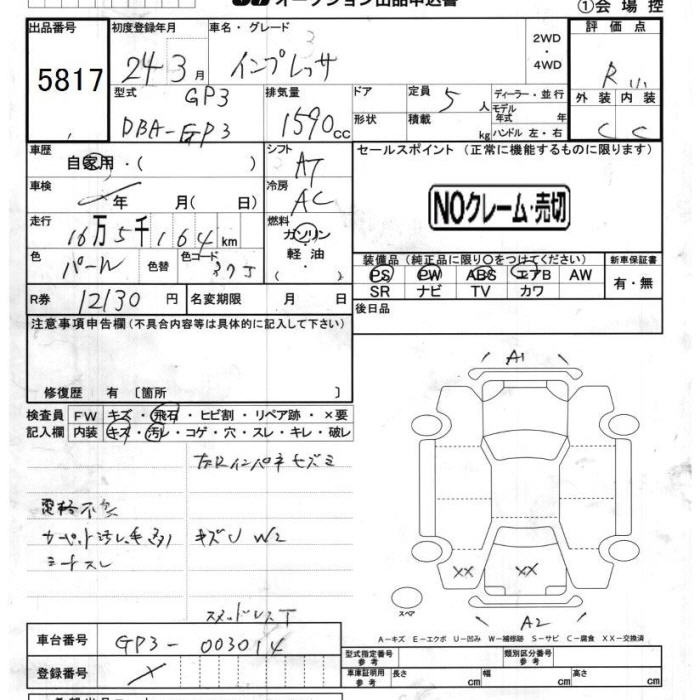 オークション出品申込書
①会場控
出品番号 初度登録年月 車名・グレード 評価点
5817 24 3月 インプレッサ 2WD ・ 4WD R
型式 GP3 排気量 ドア 定員 5人 ディーラー・並行 外装 内装
DBA-GP3 1590cc 形状 積載 kg モデル年式 年 ハンドル 左・右 C C
車歴 シフト セールスポイント (正常に機能するものに限ります)
自家用・( ) AT
車検 年 月( 日) 冷房 AC NOクレーム・売切
走行 16万5千164km 燃料 ガソリン・軽油・( )
色 パール 色替 色コード 37J
装備品 (純正品に限り○をつけてください) 新車保証書
PS PW ABS エアB AW 有・無
SR ナビ TV カワ
R券 12130円 名変期限 月 日 後日品
注意事項申告欄(不具合内容等は具体的に記入して下さい)
修復歴 有 [箇所 ]
検査員 FW キズ・飛石・ヒビ割・リペア跡・×要
記入欄 内装 キズ・汚レ・コゲ・穴・スレ・キレ・破レ
A1
左Rインパネキズミ
電格不良
カーペット汚レ毛多 キズU W2
シートスレ
XX XX
スペア
A2
スタッドレスT
A－キズ E－エクボ U－凹み W－補修跡 S－サビ C－腐食 XX－交換済
車台番号 GP3-003014
型式指定番号参考 類別区分番号参考
登録番号 ×
車庫証明用参考 長さ cm 幅 cm 高さ cm